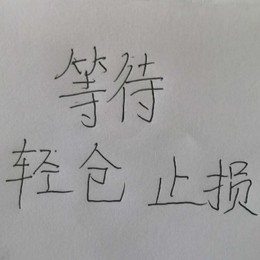 等待
轻仓 止损